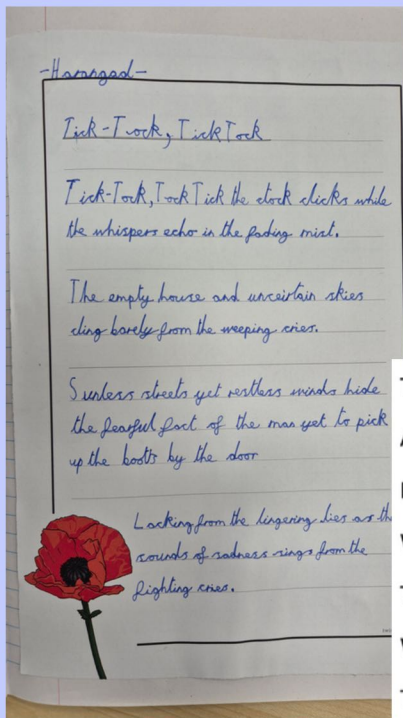 -Harangad-
Tick-Tock, Tick Tock
Tick-Tock, Tock Tick the clock clicks while
the whispers echo in the fading mist.
The empty house and unceirtain skies
cling barely from the weeping cries.
Sunless streets yet restless winds hide
the fearful fact of the man yet to pick
up the boots by the door
Lacking from the lingering lies as th
sounds of sadness rings from the
fighting cries.